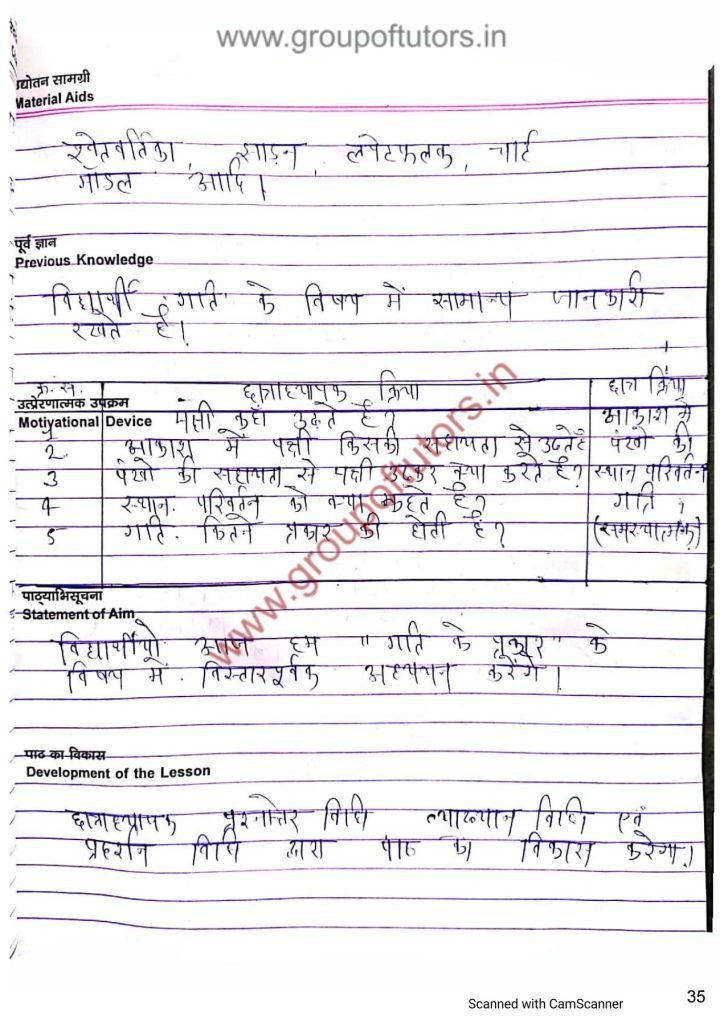 www.groupoftutors.in
उद्योतन सामग्री
Material Aids
श्वेतवर्तिका, झाड़न, लपेटफलक, चार्ट
मॉडल आदि।
पूर्व ज्ञान
Previous Knowledge
विद्यार्थी 'गति' के विषय में सामान्य जानकारी
रखते है।
क्र. स. छात्राध्यापक क्रिया छात्र क्रिया
उत्प्रेरणात्मक उपक्रम
Motivational Device
1 पक्षी कहाँ उड़ते है? आकाश मे
2. आकाश में पक्षी किसकी सहायता से उडतेहै पंखो की
3 पंखो की सहायता से पक्षी उडकर क्या करते है? स्थान परिवर्तन
4 स्थान परिवर्तन को क्या कहते है? गति
5 गति कितने प्रकार की होती है? (समस्यात्मक)
www.groupoftutors.in
पाठ्याभिसूचना
Statement of Aim
विद्यार्थीयो आज हम "गति के प्रकार" के
विषय में विस्तारपूर्वक अध्ययन करेंगे।
पाठ का विकास
Development of the Lesson
छात्राध्यापक प्रश्नोत्तर विधि व्याख्यान विधि एवं
प्रदर्शन विधि द्वारा पाठ का विकास करेगा।
Scanned with CamScanner
35